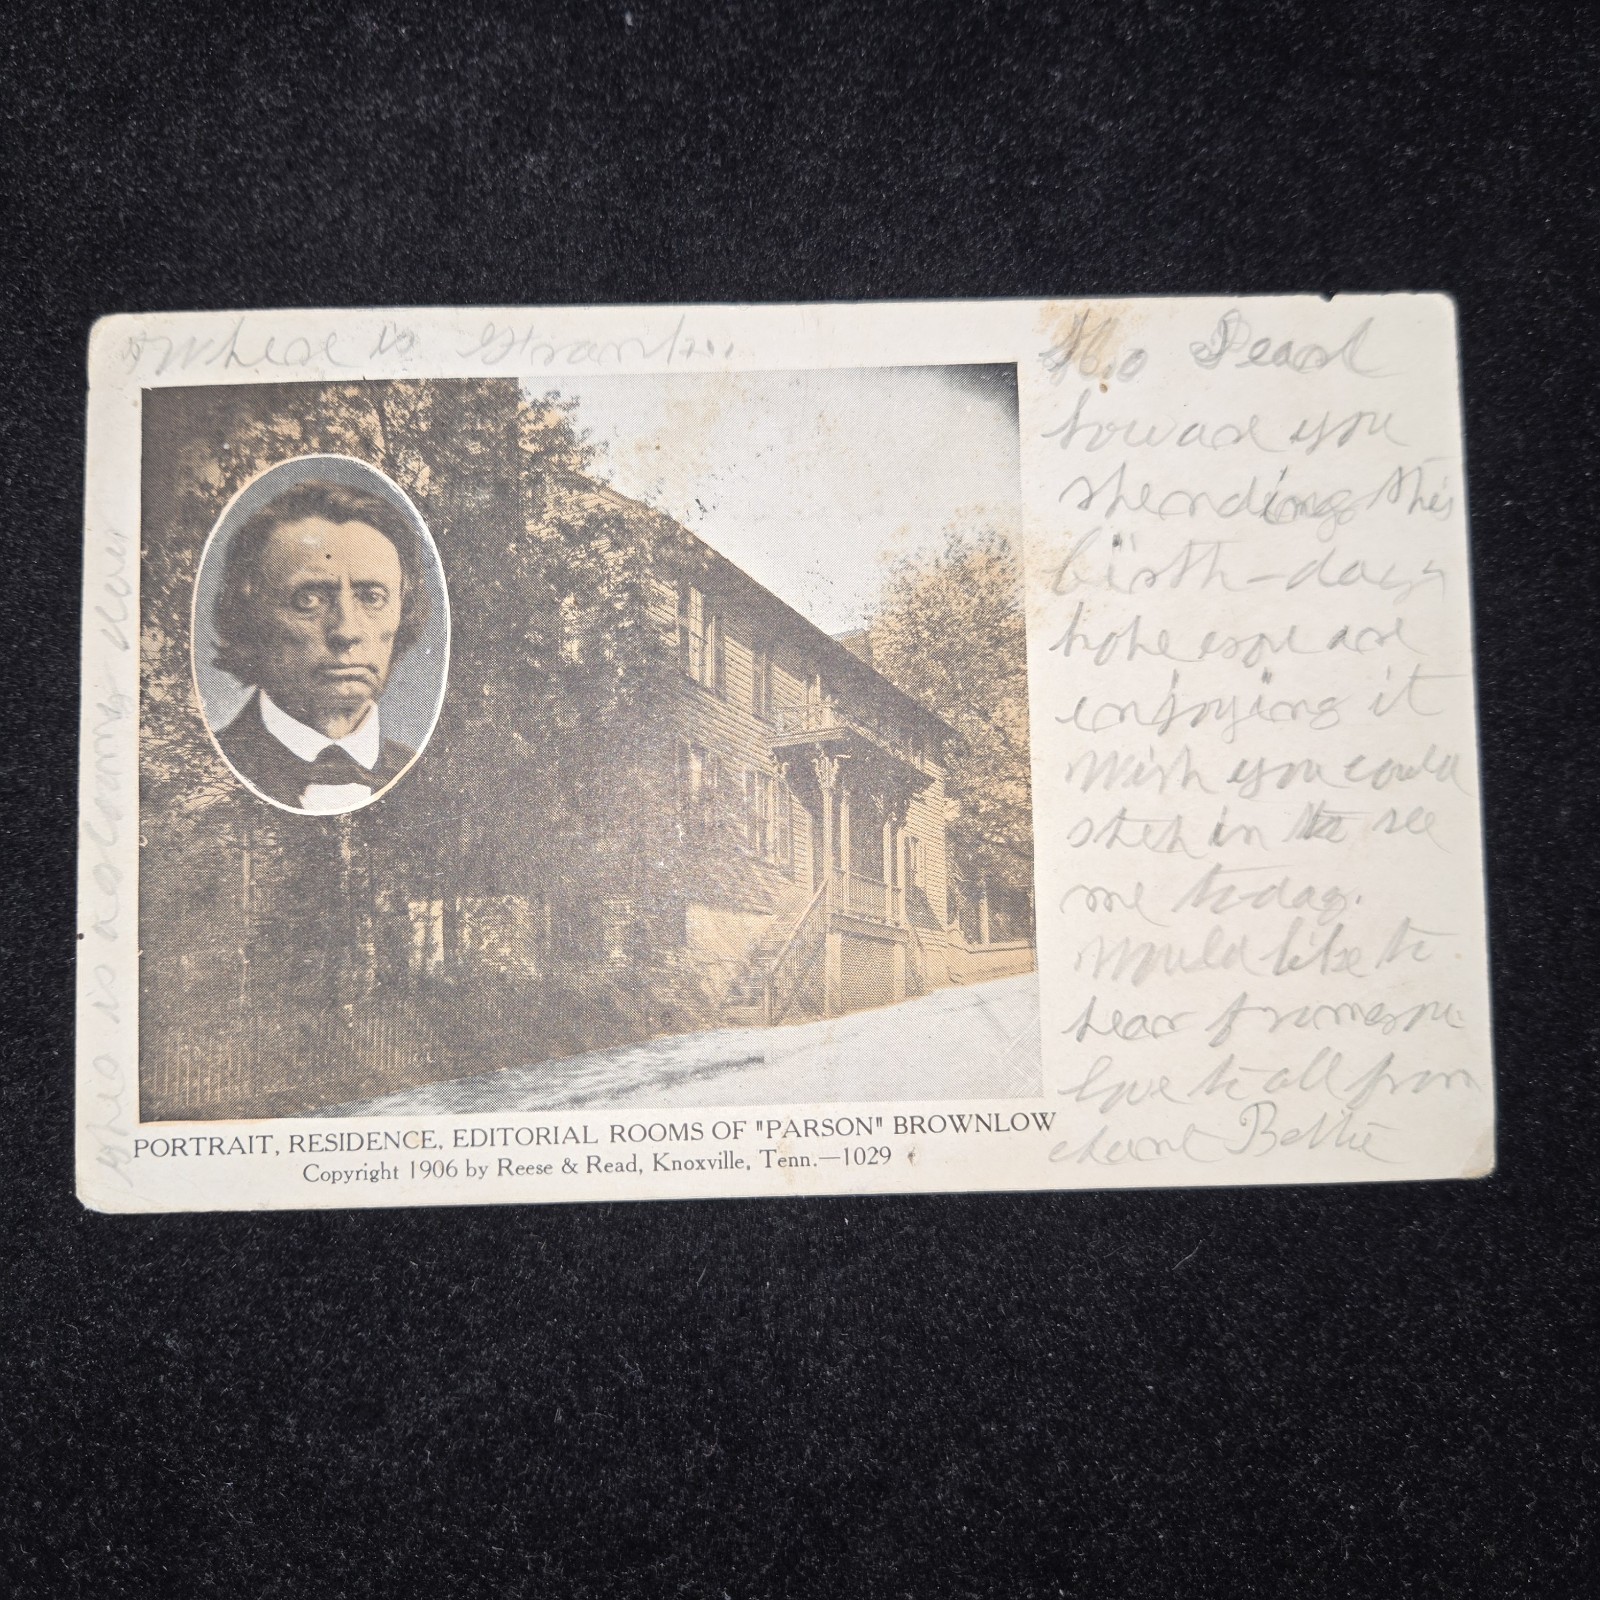 Where is Frank
Pearl
how are you
spending this
birth-day
hope you are
enjoying it
Wish you could
step in to see
me today.
Would like to
hear from you
love to all from
Aunt Bettie
PORTRAIT, RESIDENCE, EDITORIAL ROOMS OF "PARSON" BROWNLOW
Copyright 1906 by Reese & Read, Knoxville, Tenn.—1029
is